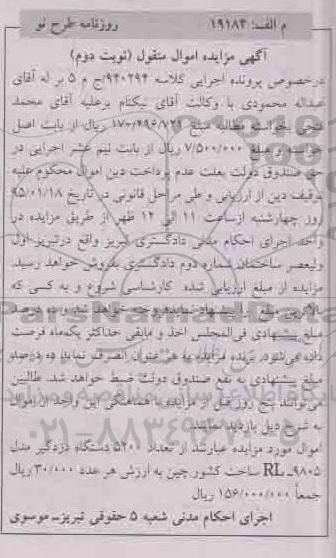 م الف: ۱۹۱۸۳ روزنامه طرح نو
آگهی مزایده اموال منقول (نوبت دوم)
درخصوص پرونده اجرایی کلاسه ۹۴۰۳۹۴/ج م ۵ بر له آقای
عبداله محمودی با وکالت آقای نیکنام برعلیه آقای محمد
فتحی بخواسته مطالبه مبلغ ۱۷۰/۴۹۶/۷۲۲ ریال از بابت اصل
خواسته و مبلغ ۷/۵۰۰/۰۰۰ ریال از بابت نیم عشر اجرایی در
حق صندوق دولت بعلت عدم پرداخت دین اموال محکوم علیه
توقیف دین از ارزیابی و طی مراحل قانونی در تاریخ ۹۵/۰۱/۱۸
روز چهارشنبه ازساعت ۱۱ الی ۱۲ ظهر از طریق مزایده در
واحد اجرای احکام مدنی دادگستری تبریز واقع درتبریز اول
ولیعصر ساختمان شماره دوم دادگستری بفروش خواهد رسید.
مزایده از مبلغ ارزیابی شده کارشناسی شروع و به کسی که
بالاترین مبلغ را پیشنهاد نماید فروخته خواهد شد و ده درصد
مبلغ پیشنهادی فی‌المجلس اخذ و مابقی حداکثر یکماه فرصت
داده می‌شود. برنده مزایده به هر عنوان انصرف نماید ده درصد
مبلغ پیشنهادی به نفع صندوق دولت ضبط خواهد شد. طالبین
می‌توانند پنج روز قبل از مزایده با هماهنگی این واحد از اموال
به شرح ذیل بازدید نمایند.
اموال مورد مزایده عبارتند از تعداد ۵۲۰۰ دستگاه دزدگیر مدل
RL ـ۹۸۰۵ ساخت کشور چین به ارزش هر عدد ۳۰/۰۰۰ ریال
جمعاً ۱۵۶/۰۰۰/۰۰۰ ریال
اجرای احکام مدنی شعبه ۵ حقوقی تبریزـ موسوی
۰۲۱-۸۸۳۴۹۶۷۰-۵